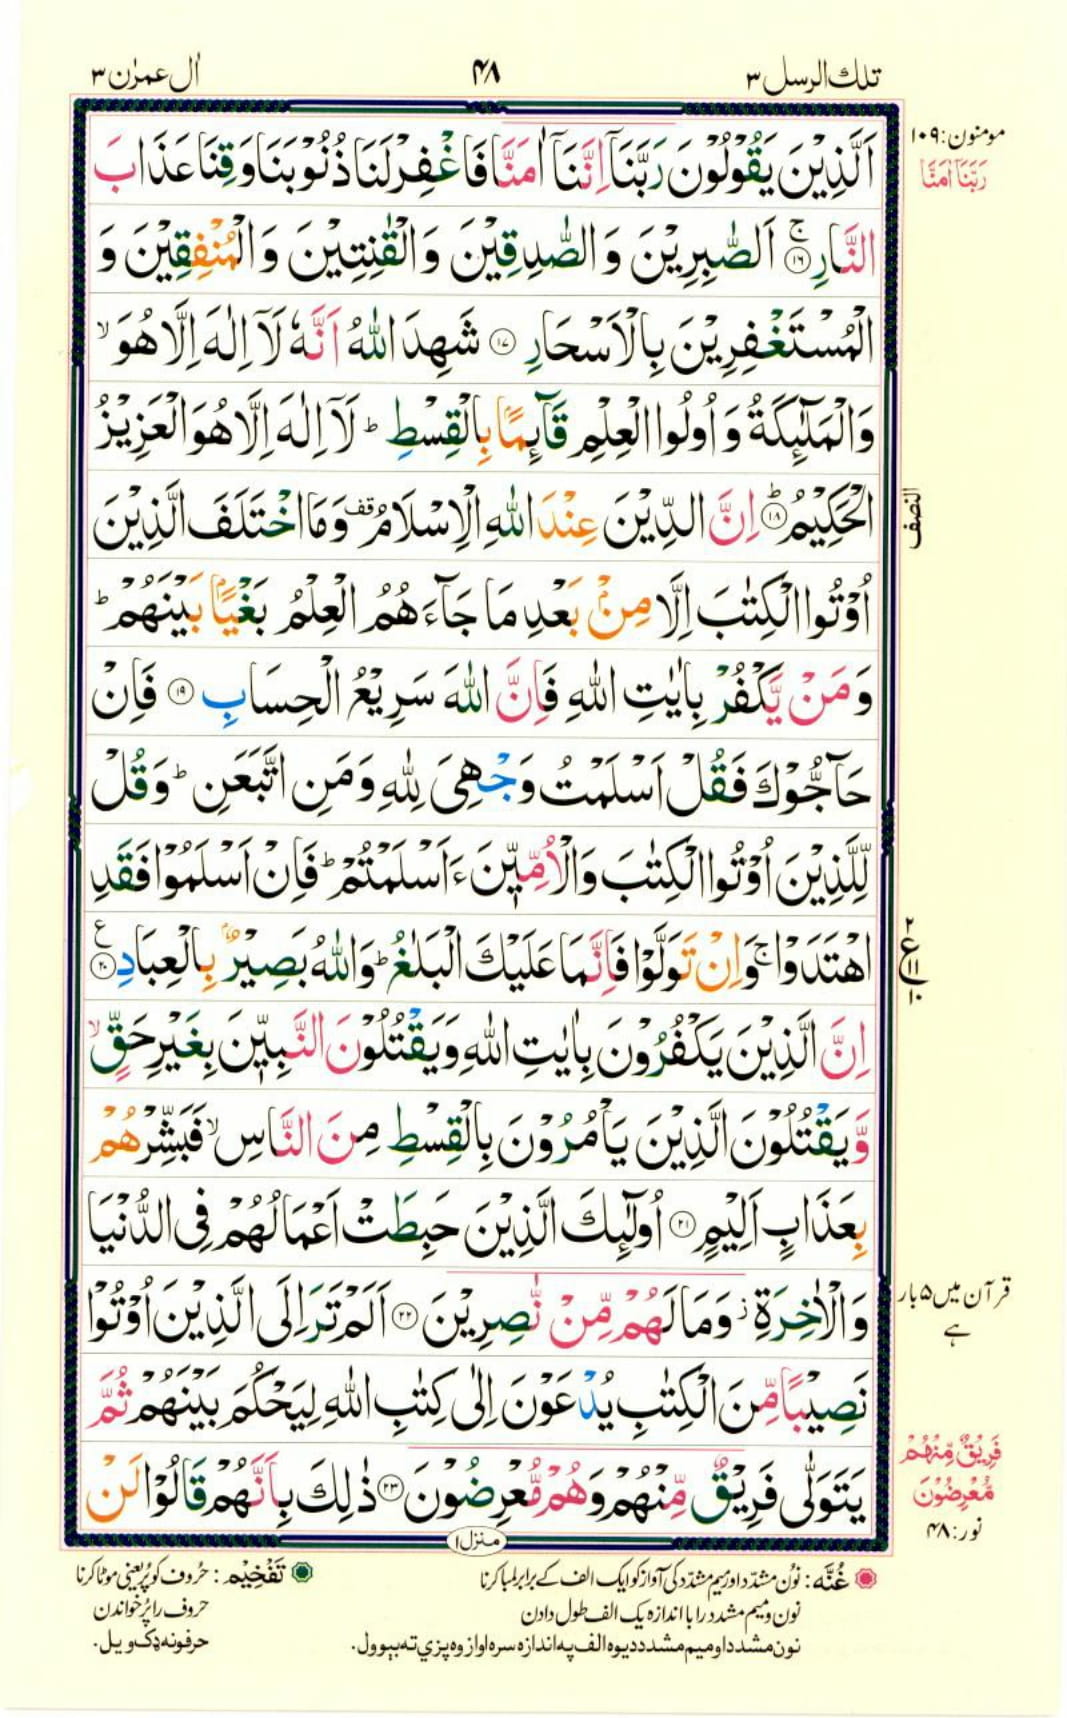 تلك الرسل ۳
۴۸
اٰل عمرٰن ۳
اَلَّذِيْنَ يَقُوْلُوْنَ رَبَّنَاۤ اِنَّنَاۤ اٰمَنَّا فَاغْفِرْ لَنَا ذُنُوْبَنَا وَقِنَا عَذَابَ
النَّارِ ۚ ۱۶ اَلصّٰبِرِيْنَ وَ الصّٰدِقِيْنَ وَ الْقٰنِتِيْنَ وَ الْمُنْفِقِيْنَ وَ
الْمُسْتَغْفِرِيْنَ بِالْاَسْحَارِ ۱۷ شَهِدَ اللّٰهُ اَنَّهٗ لَاۤ اِلٰهَ اِلَّا هُوَ ۙ
وَالْمَلٰٓئِكَةُ وَ اُولُوا الْعِلْمِ قَآئِمًۢا بِالْقِسْطِ ؕ لَاۤ اِلٰهَ اِلَّا هُوَ الْعَزِيْزُ
الْحَكِيْمُ ؕ ۱۸ اِنَّ الدِّيْنَ عِنْدَ اللّٰهِ الْاِسْلَامُ قف وَمَا اخْتَلَفَ الَّذِيْنَ
اُوْتُوا الْكِتٰبَ اِلَّا مِنْۢ بَعْدِ مَا جَآءَ هُمُ الْعِلْمُ بَغْيًۢا بَيْنَهُمْ ؕ
وَ مَنْ يَّكْفُرْ بِاٰيٰتِ اللّٰهِ فَاِنَّ اللّٰهَ سَرِيْعُ الْحِسَابِ ۱۹ فَاِنْ
حَآجُّوْكَ فَقُلْ اَسْلَمْتُ وَجْهِيَ لِلّٰهِ وَ مَنِ اتَّبَعَنِ ؕ وَ قُلْ
لِّلَّذِيْنَ اُوْتُوا الْكِتٰبَ وَالْاُمِّيّٖنَ ءَاَسْلَمْتُمْ ؕ فَاِنْ اَسْلَمُوْا فَقَدِ
اهْتَدَوْا ۚ وَ اِنْ تَوَلَّوْا فَاِنَّمَا عَلَيْكَ الْبَلٰغُ ؕ وَاللّٰهُ بَصِيْرٌۢ بِالْعِبَادِ ۲۰ ع
اِنَّ الَّذِيْنَ يَكْفُرُوْنَ بِاٰيٰتِ اللّٰهِ وَيَقْتُلُوْنَ النَّبِيّٖنَ بِغَيْرِ حَقٍّ ۙ
وَّ يَقْتُلُوْنَ الَّذِيْنَ يَاْمُرُوْنَ بِالْقِسْطِ مِنَ النَّاسِ ۙ فَبَشِّرْهُمْ
بِعَذَابٍ اَلِيْمٍ ۲۱ اُولٰٓئِكَ الَّذِيْنَ حَبِطَتْ اَعْمَالُهُمْ فِي الدُّنْيَا
وَالْاٰخِرَةِ ز وَمَا لَهُمْ مِّنْ نّٰصِرِيْنَ ۲۲ اَلَمْ تَرَ اِلَى الَّذِيْنَ اُوْتُوْا
نَصِيْبًا مِّنَ الْكِتٰبِ يُدْعَوْنَ اِلٰى كِتٰبِ اللّٰهِ لِيَحْكُمَ بَيْنَهُمْ ثُمَّ
يَتَوَلّٰى فَرِيْقٌ مِّنْهُمْ وَهُمْ مُّعْرِضُوْنَ ۲۳ ذٰلِكَ بِاَنَّهُمْ قَالُوْا لَنْ
مومنون: ۱۰۹
رَبَّنَاۤ اٰمَنَّا
النصف
۲
ع
۱۱
۱۰
قرآن میں ۵ بار
ہے
فَرِيْقٌ مِّنْهُمْ
مُّعْرِضُوْنَ
نور: ۴۸
منزل ۱
غُنَّه: نوُن مشدّد اور میم مشدّد کی آواز کو ایک الف کے برابر لمبا کرنا
نون و میم مشدد را با اندازه یک الف طول دادن
نون مشدد او میم مشدد د یوه الف په اندازه سره اواز وه پزي ته بېوول.
تَفْخِيْم: حُروف کو پُر یعنی موٹا کرنا
حروف را پُر خواندن
حرفونه ډک ویل.